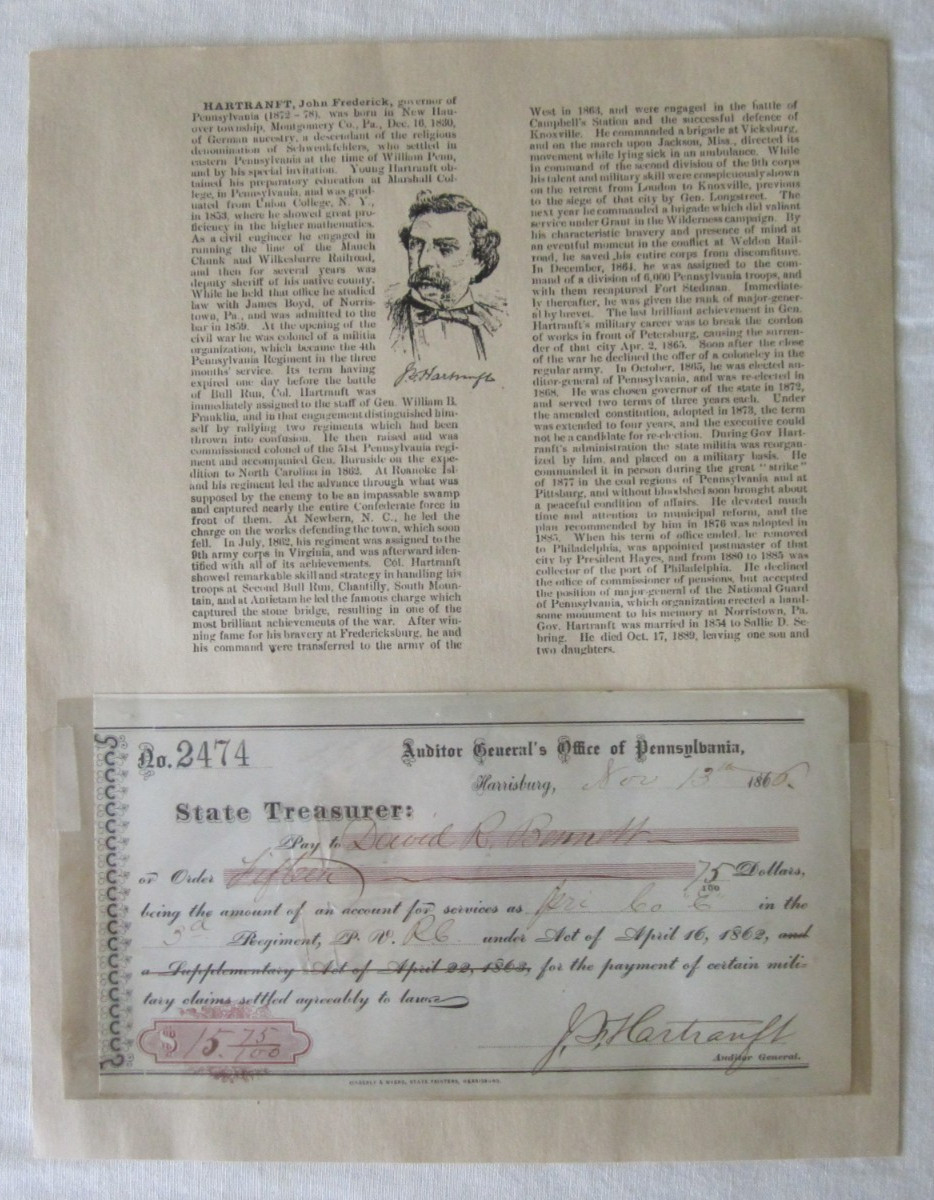 HARTRANFT, John Frederick, governor of
Pennsylvania (1872-78), was born in New Han-
over township, Montgomery Co., Pa., Dec. 16, 1830,
of German ancestry, a descendant of the religious
denomination of Schwenkfelders, who settled in
eastern Pennsylvania at the time of William Penn,
and by his special invitation. Young Hartranft ob-
tained his preparatory education at Marshall Col-
lege, in Pennsylvania, and was grad-
uated from Union College, N. Y.,
in 1853, where he showed great pro-
ficiency in the higher mathematics.
As a civil engineer he engaged in
running the line of the Mauch
Chunk and Wilkesbarre Railroad,
and then for several years was
deputy sheriff of his native county.
While he held that office he studied
law with James Boyd, of Norris-
town, Pa., and was admitted to the
bar in 1859. At the opening of the
civil war he was colonel of a militia
organization, which became the 4th
Pennsylvania Regiment in the three
months' service. Its term having
expired one day before the battle
of Bull Run, Col. Hartranft was
immediately assigned to the staff of Gen. William B.
Franklin, and in that engagement distinguished him-
self by rallying two regiments which had been
thrown into confusion. He then raised and was
commissioned colonel of the 51st Pennsylvania regi-
ment and accompanied Gen. Burnside on the expe-
dition to North Carolina in 1862. At Roanoke Isl-
and his regiment led the advance through what was
supposed by the enemy to be an impassable swamp
and captured nearly the entire Confederate force in
front of them. At Newbern, N. C., he led the
charge on the works defending the town, which soon
fell. In July, 1862, his regiment was assigned to the
9th army corps in Virginia, and was afterward iden-
tified with all of its achievements. Col. Hartranft
showed remarkable skill and strategy in handling his
troops at Second Bull Run, Chantilly, South Moun-
tain, and at Antietam he led the famous charge which
captured the stone bridge, resulting in one of the
most brilliant achievements of the war. After win-
ning fame for his bravery at Fredericksburg, he and
his command were transferred to the army of the
J. F. Hartranft
West in 1863, and were engaged in the battle of
Campbell's Station and the successful defence of
Knoxville. He commanded a brigade at Vicksburg,
and on the march upon Jackson, Miss., directed its
movement while lying sick in an ambulance. While
in command of the second division of the 9th corps
his talent and military skill were conspicuously shown
on the retreat from Loudon to Knoxville, previous
to the siege of that city by Gen. Longstreet. The
next year he commanded a brigade which did valiant
service under Grant in the Wilderness campaign. By
his characteristic bravery and presence of mind at
an eventful moment in the conflict at Weldon Rail-
road, he saved his entire corps from discomfiture.
In December, 1864, he was assigned to the com-
mand of a division of 6,000 Pennsylvania troops, and
with them recaptured Fort Stedman. Immediate-
ly thereafter, he was given the rank of major-gener-
al by brevet. The last brilliant achievement in Gen.
Hartranft's military career was to break the cordon
of works in front of Petersburg, causing the surren-
der of that city Apr. 2, 1865. Soon after the close
of the war he declined the offer of a coloneley in the
regular army. In October, 1865, he was elected au-
ditor-general of Pennsylvania, and was re-elected in
1868. He was chosen governor of the state in 1872,
and served two terms of three years each. Under
the amended constitution, adopted in 1873, the term
was extended to four years, and the executive could
not be a candidate for re-election. During Gov Hart-
ranft's administration the state militia was reorgan-
ized by him, and placed on a military basis. He
commanded it in person during the great "strike"
of 1877 in the coal regions of Pennsylvania and at
Pittsburg, and without bloodshed soon brought about
a peaceful condition of affairs. He devoted much
time and attention to municipal reform, and the
plan recommended by him in 1876 was adopted in
1885. When his term of office ended, he removed
to Philadelphia, was appointed postmaster of that
city by President Hayes, and from 1880 to 1885 was
collector of the port of Philadelphia. He declined
the office of commissioner of pensions, but accepted
the position of major-general of the National Guard
of Pennsylvania, which organization erected a hand-
some monument to his memory at Norristown, Pa.
Gov. Hartranft was married in 1854 to Sallie D. Se-
bring. He died Oct. 17, 1889, leaving one son and
two daughters.
No. 2474
Auditor General's Office of Pennsylvania,
Harrisburg, Nov 13th 1866.
State Treasurer:
Pay to David R. Bennett
or Order Fifteen 75/100 Dollars,
being the amount of an account for services as Co "E" in the
3d Regiment, P. V. RC under Act of April 16, 1862, and
a Supplementary Act of April 22, 1863, for the payment of certain mili-
tary claims settled agreeably to law.
$ 15.75/100
J. F. Hartranft
Auditor General.